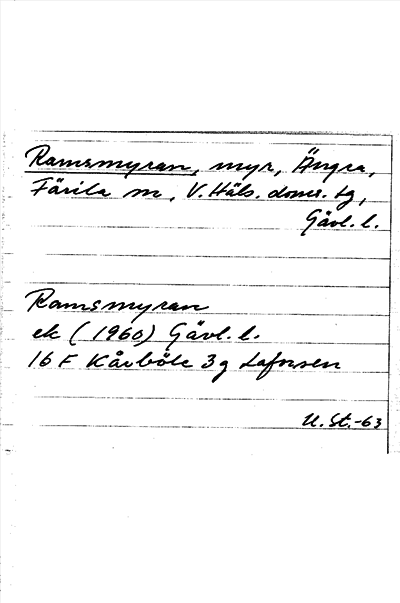 Ramsmyran, myr, Ängra,
Färila sn, V. Häls. doms. tg,
Gävl. l.
Ramsmyran
ek (1960) Gävl. l.
16 F Kårböle 3 g Laforsen
U. St. -63